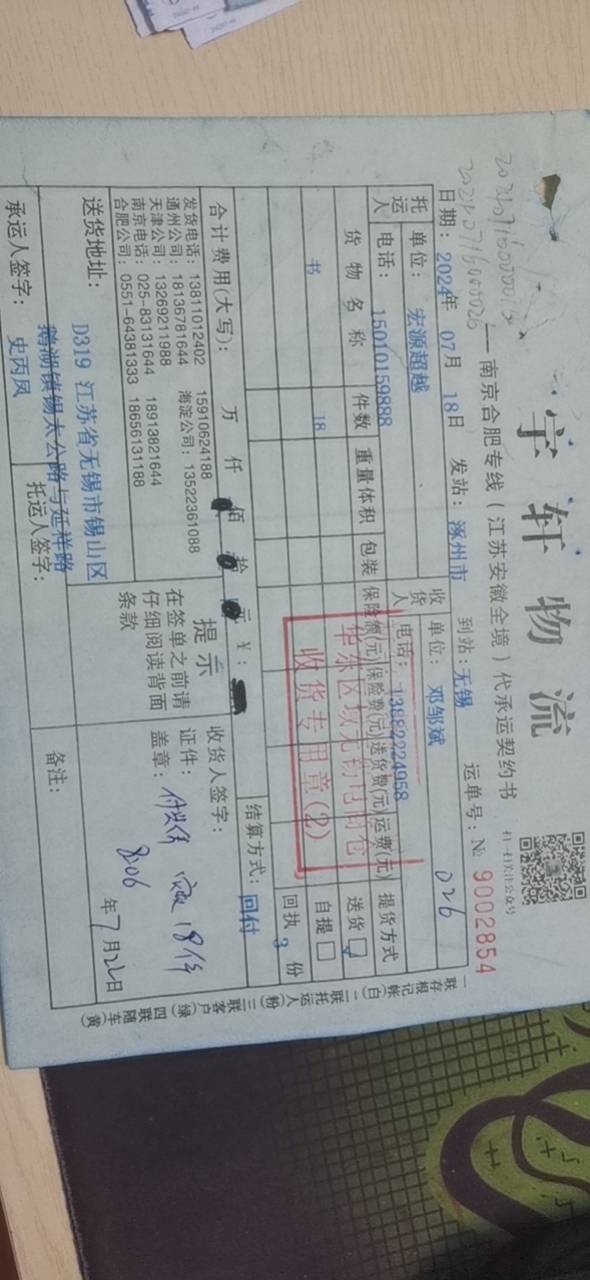 宇轩物流
南京合肥专线（江苏安徽全境）代承运契约书
扫一扫关注公众号
日期：2024年 07月 18日 发站：涿州市 到站：无锡 运单号：№ 9002854
托运人 单位：宏源超越 收货人 单位：邓邹斌 026
电话：15010159888 电话：13882224958
货物名称 件数 重量 体积 包装 保险额(元) 保险费(元) 送货费(元) 运费(元) 提货方式
书 18 送货 自提
收货专用章(2)
回执 3 份
合计费用(大写)： 万 仟 佰 拾 元 ￥： 结算方式：回付
发货电话：13811012402 15910624188
通州公司：18136781644 海淀公司：13522361088
天津公司：13269211988
南京电话：025-83131644 18913821644
合肥公司：0551-64381333 18656131188
提示
在签单之前请
仔细阅读背面
条款
收货人签字：
证件：
盖章： 18件
8:06 年7月22日
送货地址：D319 江苏省无锡市锡山区
鹅湖镇锡太公路与延祥路
备注：
承运人签字：史丙凤 托运人签字：
一联存根记帐(白) 二联托运人(粉) 三联客户(绿) 四联随车(黄)